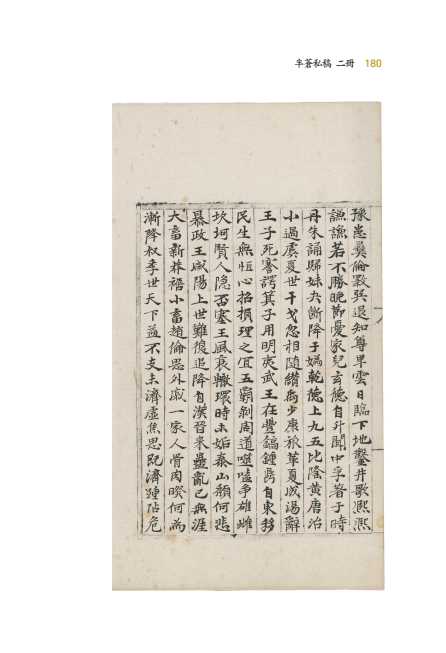 半蒼私稿 二冊 180
豫恚彛倫斁巽退知尊卑雲日臨下地鑿井歌熙熙
謙謙若不勝晩節憂家兒玄德自升聞中孚著于時
丹朱訟歸妹夬斷降于嬀乾德上九五比隆黃唐治
小過虞夏世干戈忽相隨纘禹少康旅革夏成湯辭
王子死謇諤箕子用明夷武王在豐鎬鍾鼎自東移
民生無恒心招損理之宜五霸剝周道噬嗑爭雄雌
坎坷賢人隱否塞王風衰轍環時未姤泰山頹何悲
暴政王咸陽上世難復追降自漢晉來蠱亂已無涯
大畜新莽禍小畜趙倫思外戚一家人骨肉暌何爲
漸降叔季世天下益不支未濟虛焦思旣濟踵阽危